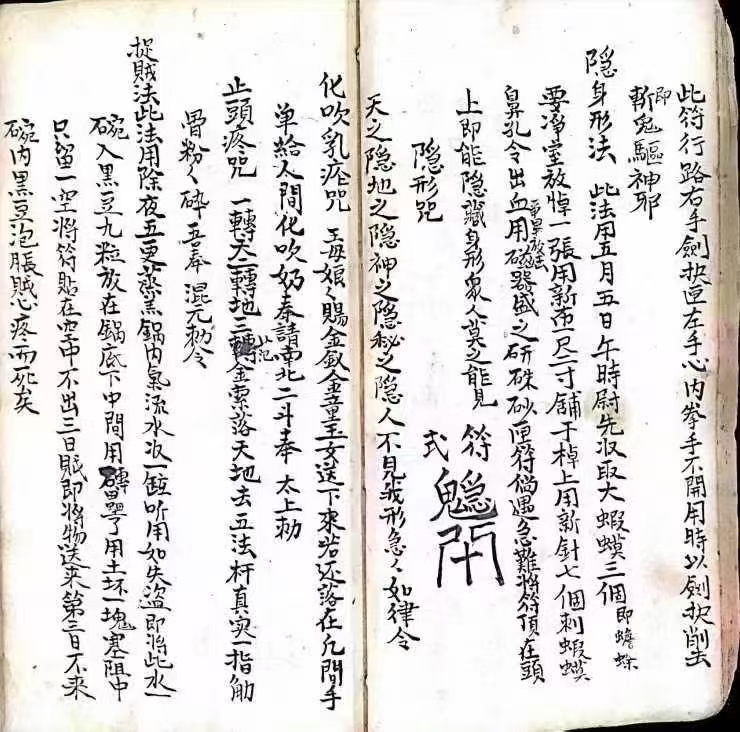 此符行路右手劍抉画左手心内拳手不開用時以劍抉削出
即斬鬼驅神邪
隐身形法 此法用五月五日午時尉先收取大蝦蟆三個即蟾蜍
要净室放悼一張用新布一尺二寸舖于棹上用新針七個刺蝦蟆
鼻孔令出血用磁器盛之研硃砂画符倘遇急難將符頂在頭
上即能隐藏身形衆人莫之能見 符式
隐形咒
天之隐地之隐神之隐秘之隐人不見我形急々如律令
化吹乳疼咒 王母娘々賜金釵金童玉女送下來若还落在凢間手
单給人間化吹奶奉請南北二斗奉 太上勅
止頭疼咒 一轉天二轉地三轉金索落天地去五法杆真实一指觔
骨粉々碎吾奉 混元勅令
捉賊法此法用除夜五更蒸黑锅内氣流水収一缸听用如失盜即將此水一
碗入黑豆九粒放在锅底下中間用磚罩了用土坯一塊塞阻中
只留一空將符貼在空中不出三日贼即將物送来第三日不来
碗内黑豆泡脹賊心疼而死矣